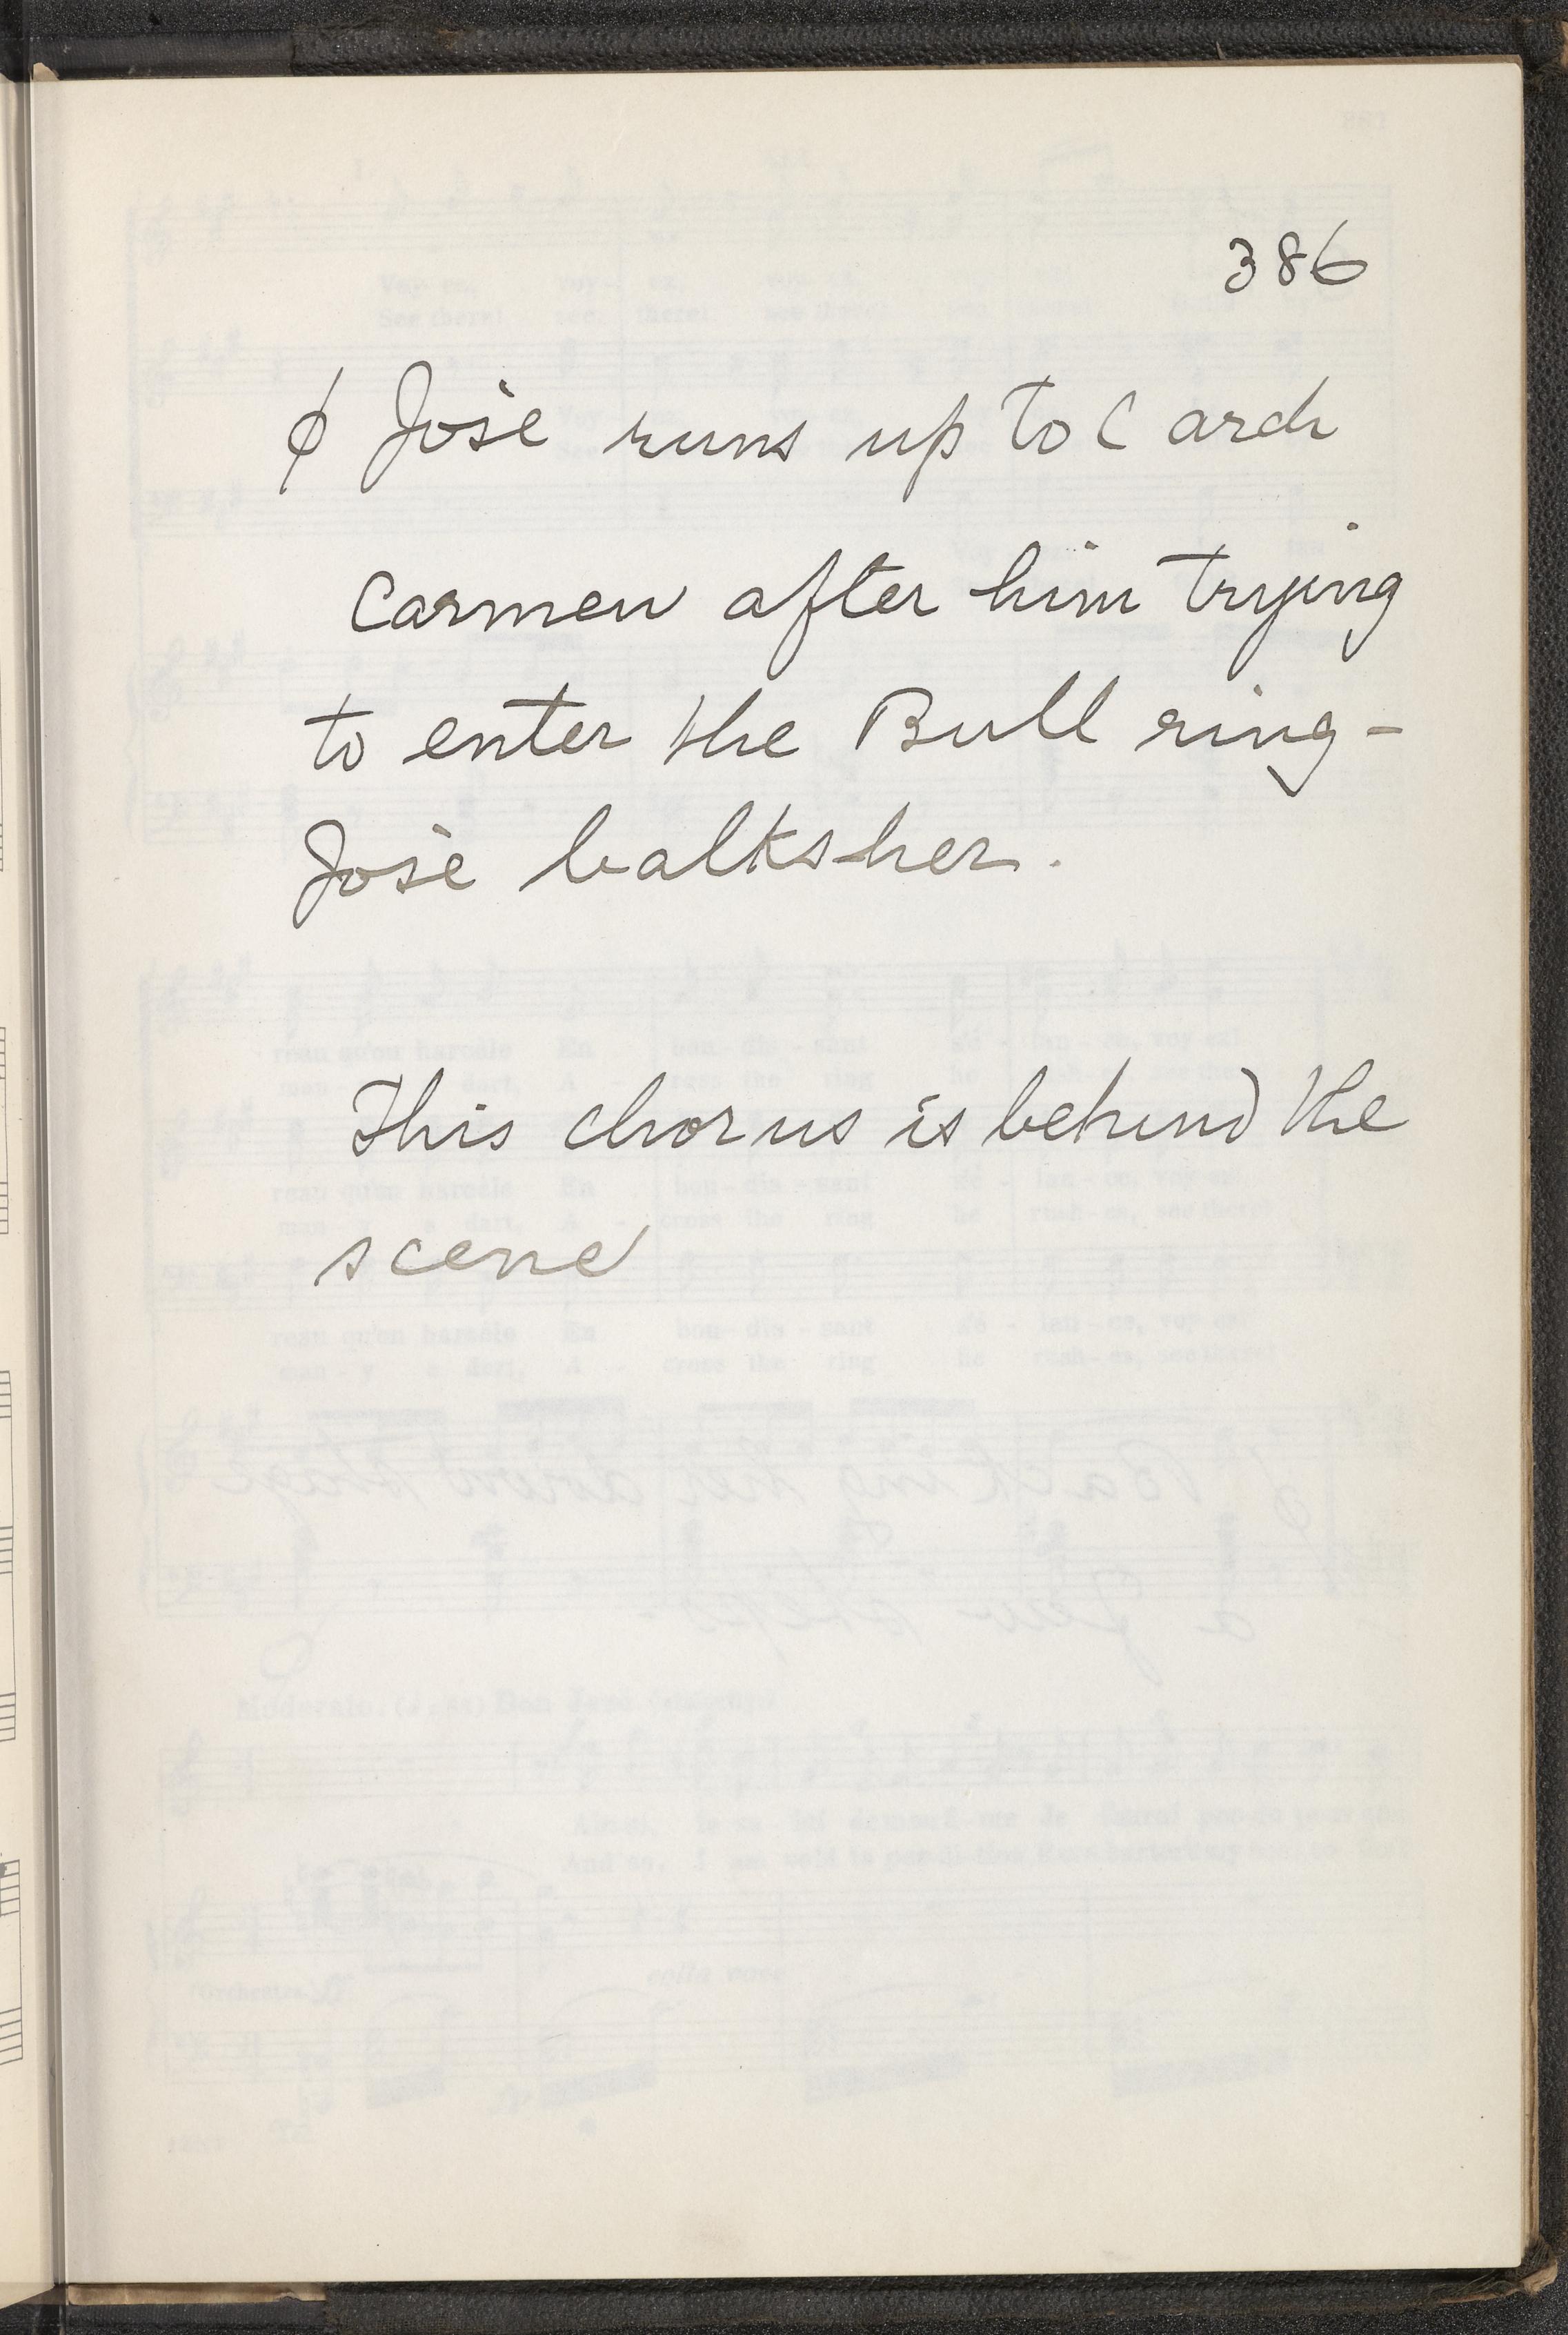 386
ϕ José runs up to C arch
Carmen after him trying
to enter the Bull ring -
José balks her.
This chorus is behind the
scene